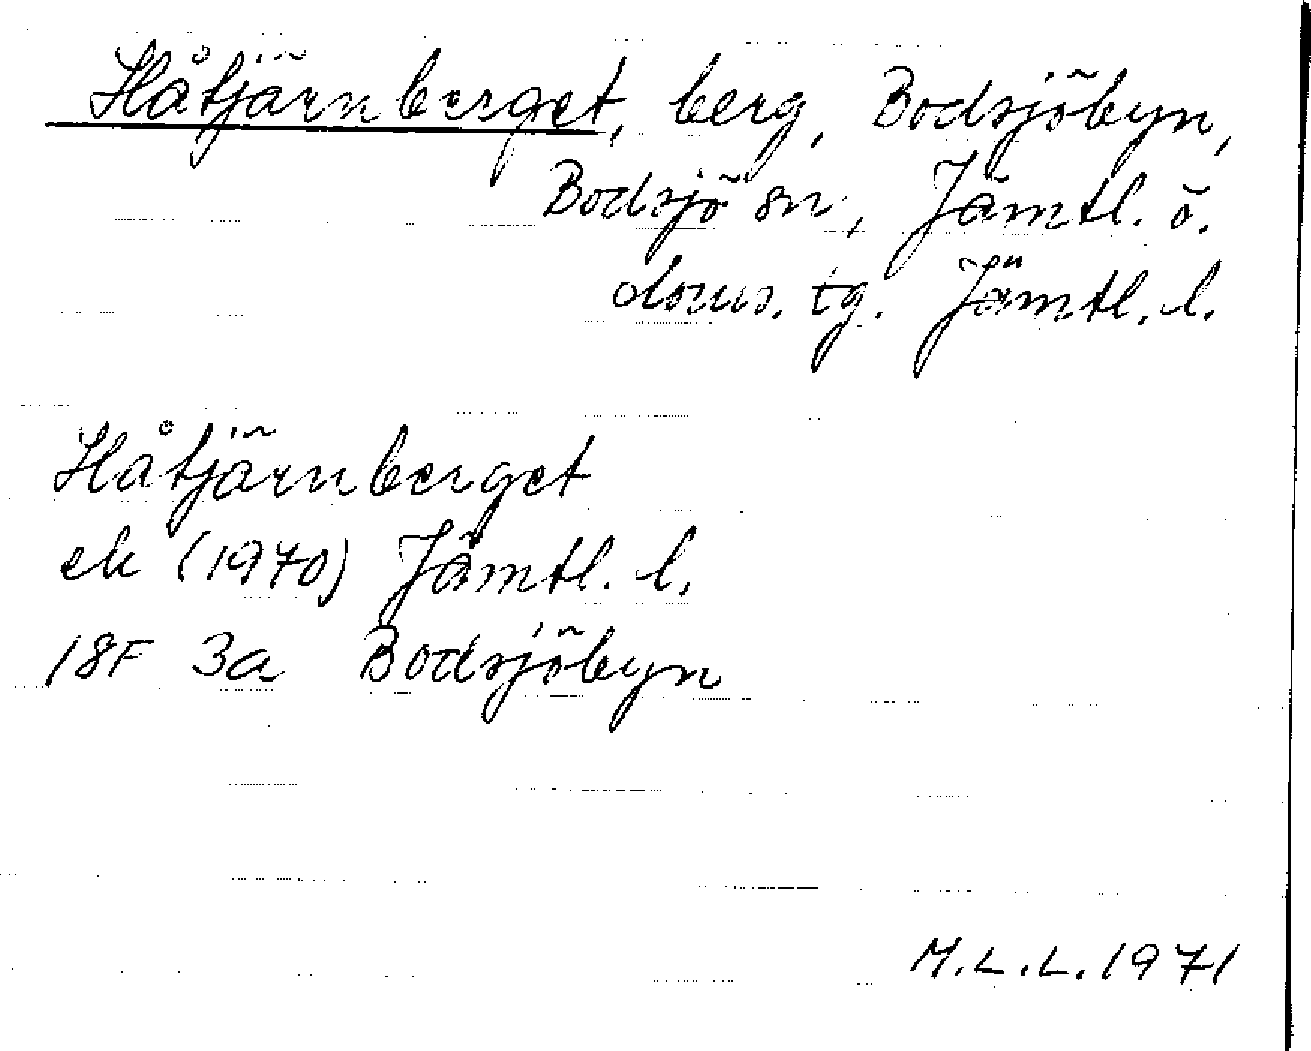 Håtjärnberget, berg, Bodsjöbyn,
Bodsjö sn, Jämtl. ö.
doms. tg. Jämtl. l.
Håtjärnberget
ek (1970) Jämtl. l.
18F 3a Bodsjöbyn
M.L.L. 1971